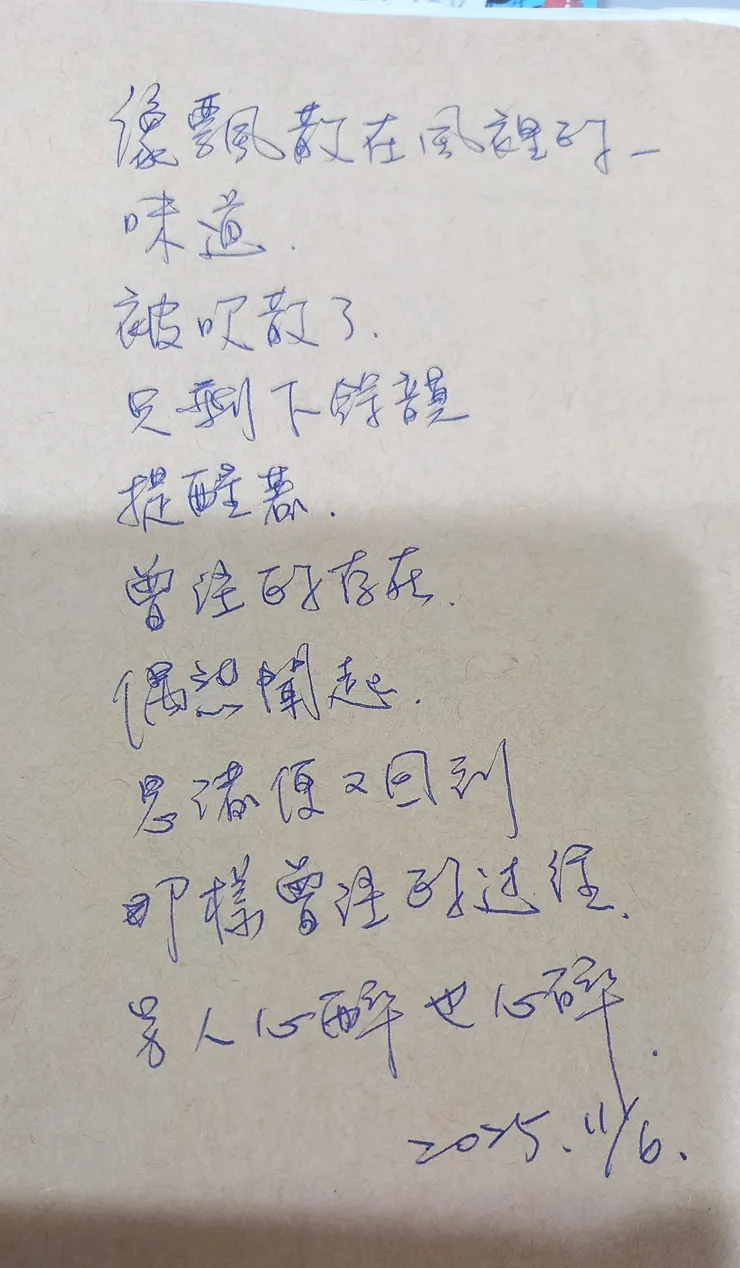 像飄散在風裡的
味道.
被吹散了.
只剩下餘韻
提醒著.
曾經的存在.
偶然聞起.
思緒便又回到
那樣曾經的过往.
另人心醉也心碎.
2025.11/6.